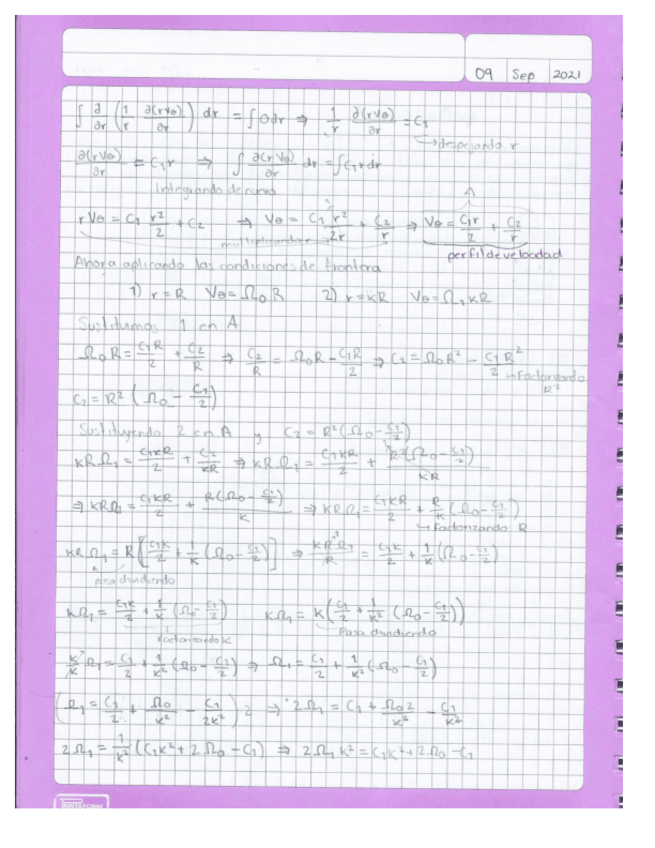 09 Sep 2021
∫ ∂/∂r (1/r ∂(rVθ)/∂r) dr = ∫0dr ⇒ 1/r ∂(rVθ)/∂r = C₁
→ despejando r
∂(rVθ)/∂r = C₁r ⇒ ∫ ∂(rVθ)/∂r dr = ∫C₁rdr
Integrando de nuevo
A
rVθ = C₁ r²/2 + C₂ ⇒ Vθ = C₁r²/2r + C₂/r ⇒ Vθ = C₁r/2 + C₂/r
multiplicando r
perfil de velocidad
Ahora aplicando las condiciones de frontera
1) r=R Vθ=Ω₀R 2) r=κR Vθ=Ω₁κR
1 en A
Ω₀R = C₁R/2 + C₂/R ⇒ C₂/R = Ω₀R - C₁R/2 ⇒ C₂ = Ω₀R² - C₁R²/2
→ Factorizando R²
C₂ = R² (Ω₀ - C₁/2)
Sustituyendo 2 en A y C₂ = R²(Ω₀ - C₁/2)
κRΩ₁ = C₁κR/2 + C₂/κR ⇒ κRΩ₁ = C₁κR/2 + R²(Ω₀ - C₁/2)/κR
⇒ κRΩ₁ = C₁κR/2 + R(Ω₀ - C₁/2)/κ ⇒ κRΩ₁ = C₁κR/2 + R/κ (Ω₀ - C₁/2)
→ factorizando R
κRΩ₁ = R[C₁κ/2 + 1/κ (Ω₀ - C₁/2)] ⇒ κRΩ₁/R = C₁κ/2 + 1/κ (Ω₀ - C₁/2)
pasa dividiendo
κΩ₁ = C₁κ/2 + 1/κ (Ω₀ - C₁/2) κΩ₁ = κ(C₁/2 + 1/κ² (Ω₀ - C₁/2))
factorizando κ Pasa dividiendo
κ/κ Ω₁ = C₁/2 + 1/κ² (Ω₀ - C₁/2) ⇒ Ω₁ = C₁/2 + 1/κ² (Ω₀ - C₁/2)
(Ω₁ = C₁/2 + Ω₀/κ² - C₁/2κ²) 2 ⇒ 2Ω₁ = C₁ + Ω₀2/κ² - C₁/κ²
2Ω₁ = 1/κ² (C₁κ² + 2Ω₀ - C₁) ⇒ 2Ω₁κ² = C₁κ² + 2Ω₀ - C₁